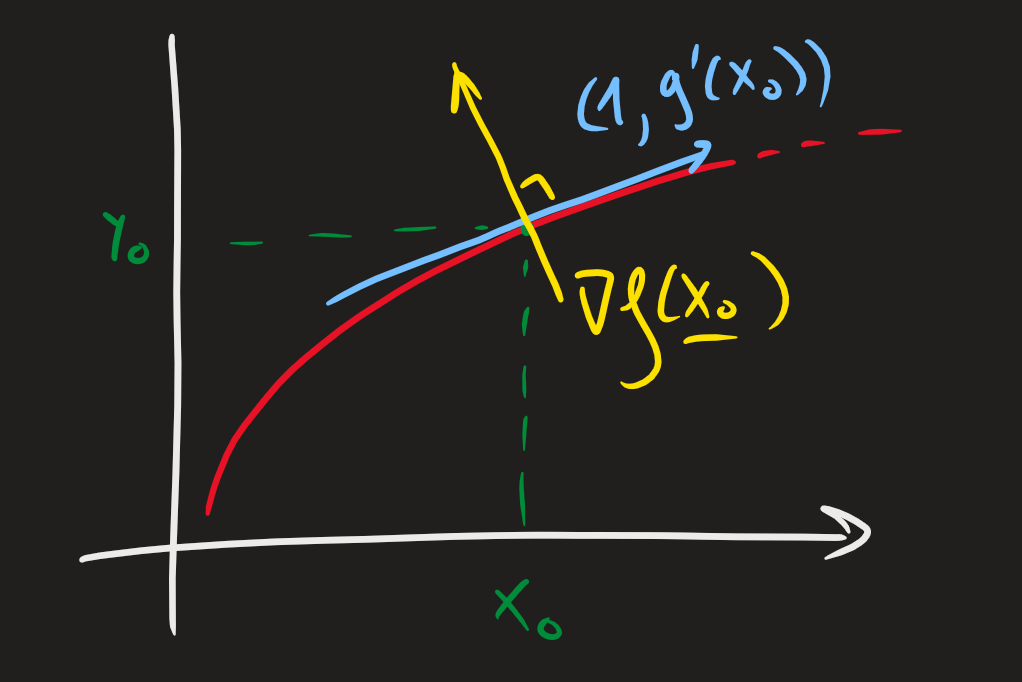 (1, g'(x₀))
y₀
∇f(x₀)
x₀